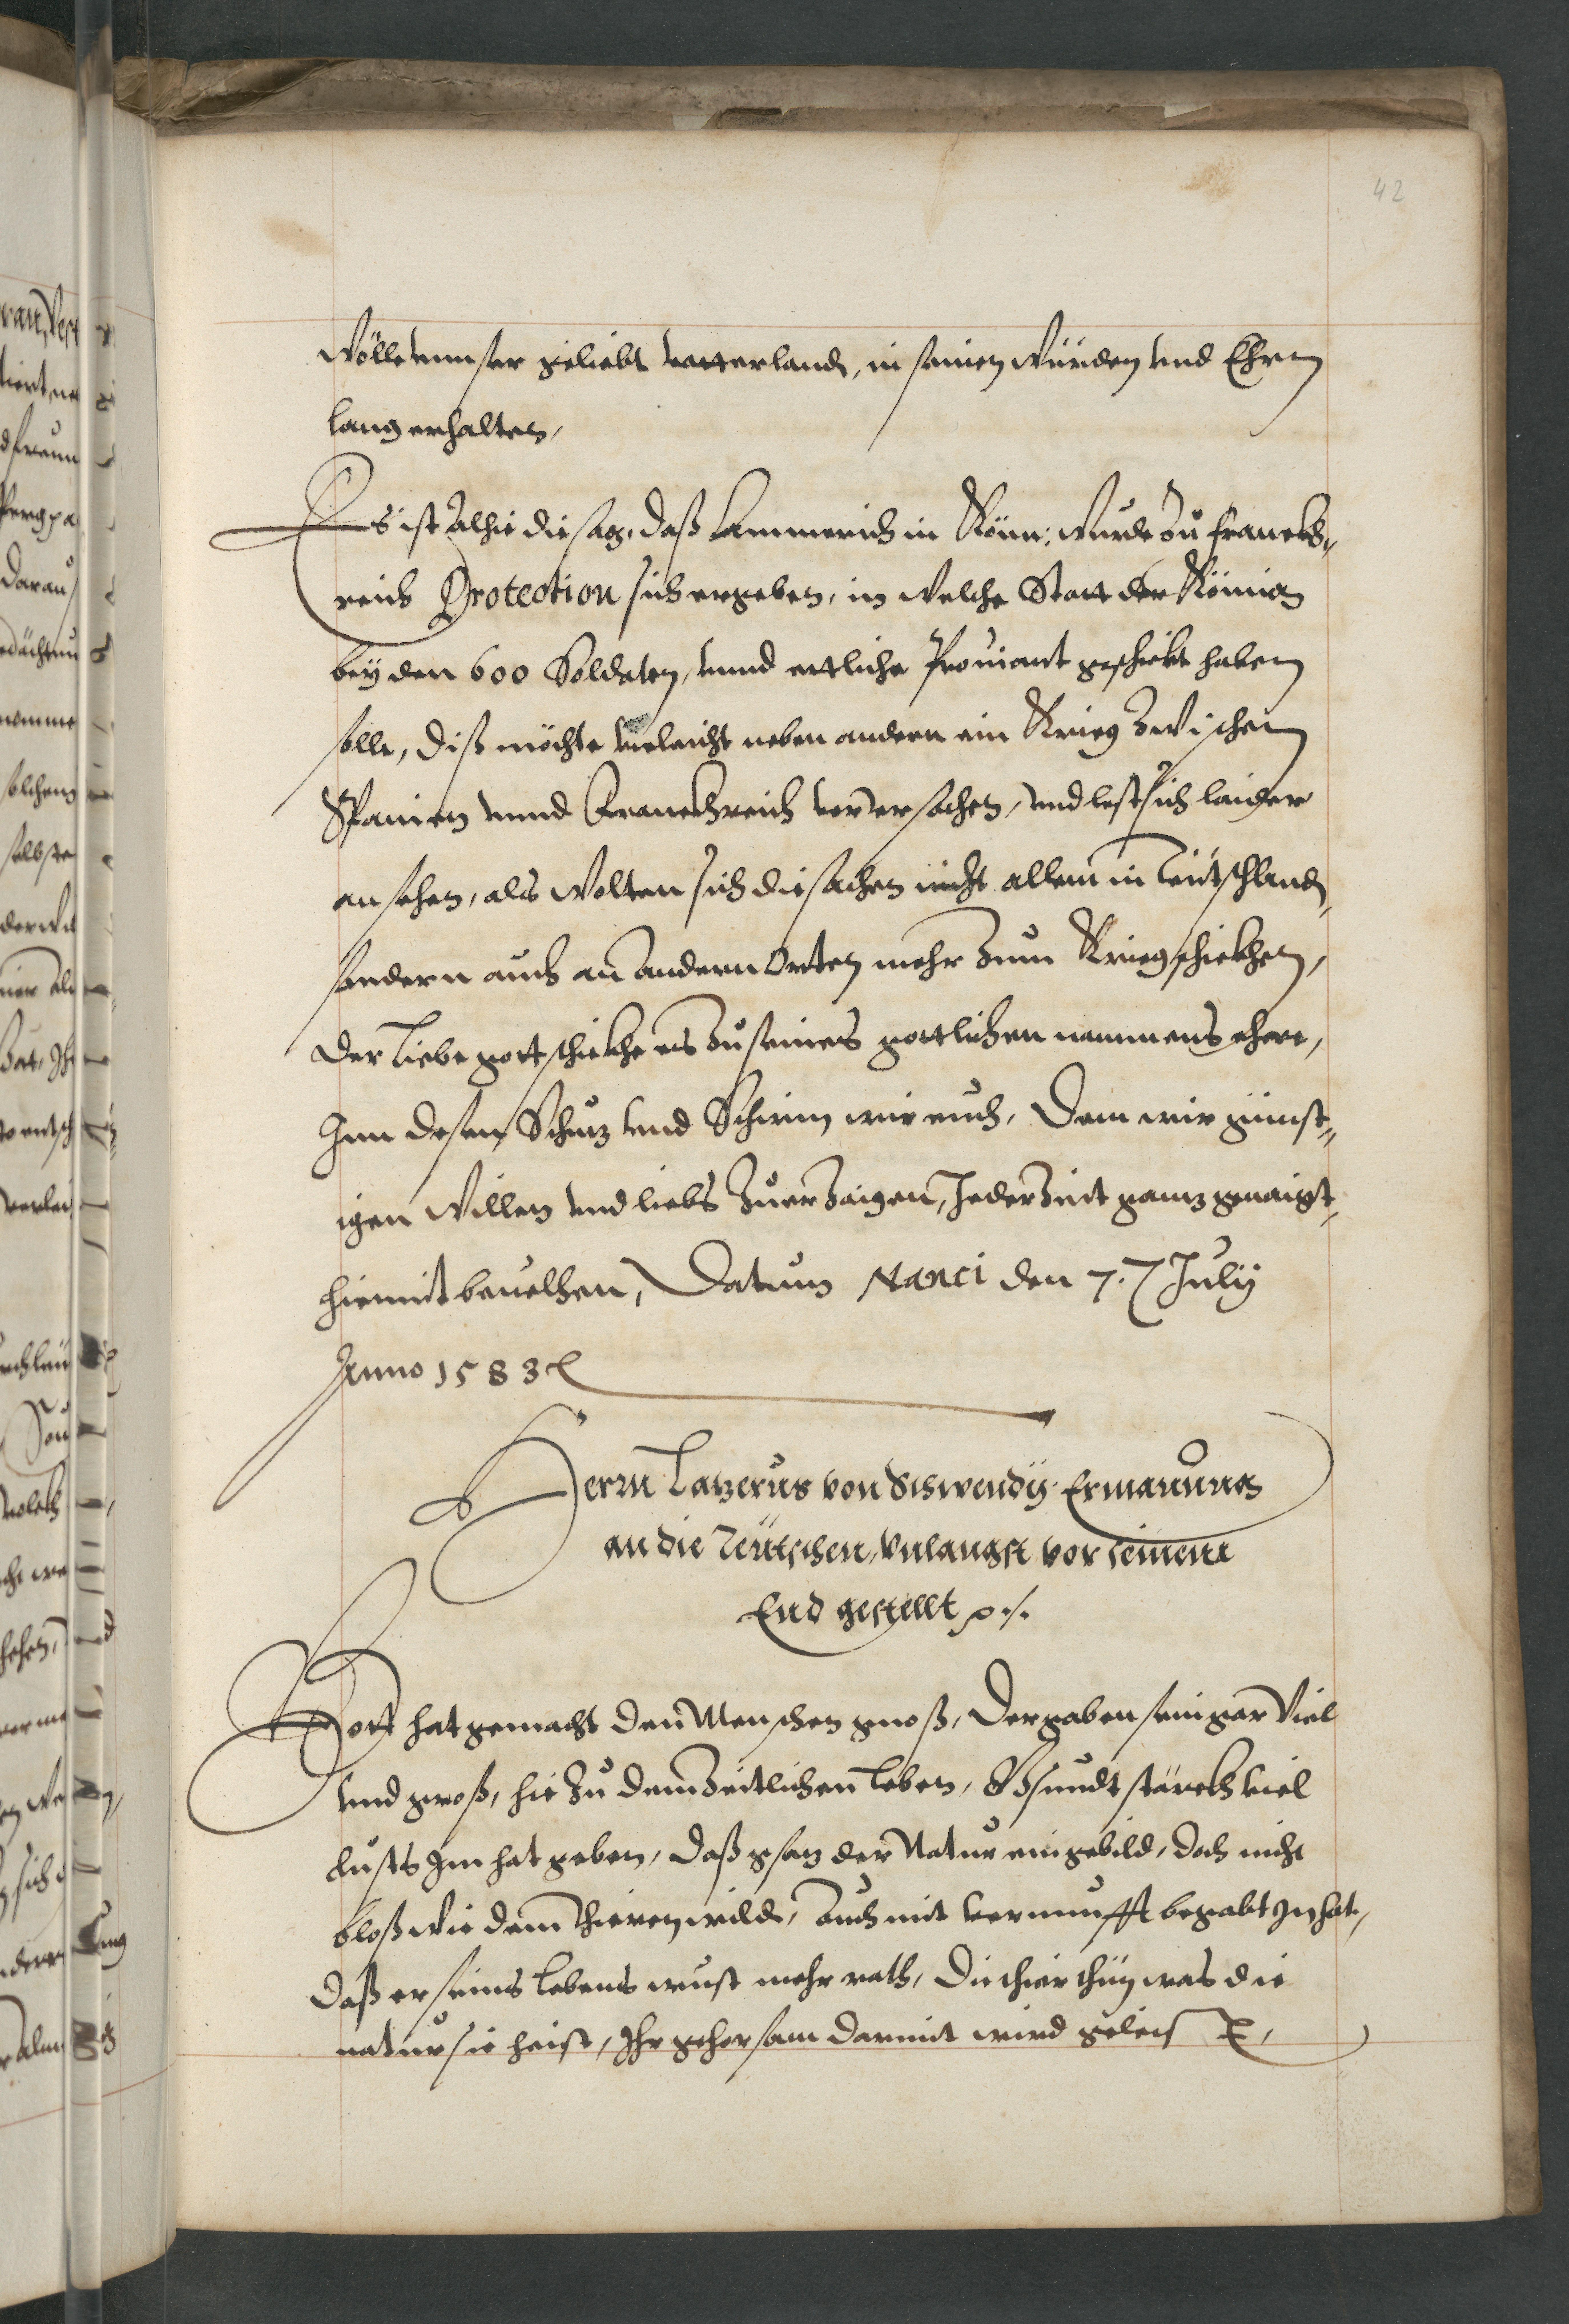 42
Wölle unnser geliebt vatterland, in seinen Würden und Ehren
lang erhalten,
Es ist Alhie die sag, daß Cammerich in Könn: Wurde zu Franckh„
reich Protection sich ergeben, in Welche Statt der König
bey den 600 Soldaten, unnd ettliche Prouiant geschickt haben
solle, diß möchte vieleicht neben andern ein Krieg zwischen
Spanien unnd Franckhreich verursachen, und lest sich laider
ansehen, als Wolten sich die sachen nicht allein in Teütschland,
sondern auch an andern Orten mehr zum Krieg schickhen,
der liebe gott schickhe es zu seines göttlichen nammens ehere,
Inn desen Schuz und Schirm wir euch, Dem wir günst„
igen Willen und liebs zuerzaigen, Jederzeit ganz genaigt,
hiemit beuelhen, Datum Nanci den 7. July
Anno 1583
Herrn Lazerus von Schwendÿ Ermanung
an die Teütschen, Unlangst vor seinem
End gestellt
Gott hat gemacht den Menschen gnoß, Der gaben sein gar Viel
und groß, hie zu dem zeitlichen leben, Gsundt stärckh viel
lusts Im hat geben, daß gsaz der Natur eingebild, doch nicht
bloß wie dem thieren wild, Auch mit vernunfft begabt In hat,
daß er seins lebens wust mehr rath, Die thier thun was die
natur sie heist, Ihr gehorsam darmit wird geleist,